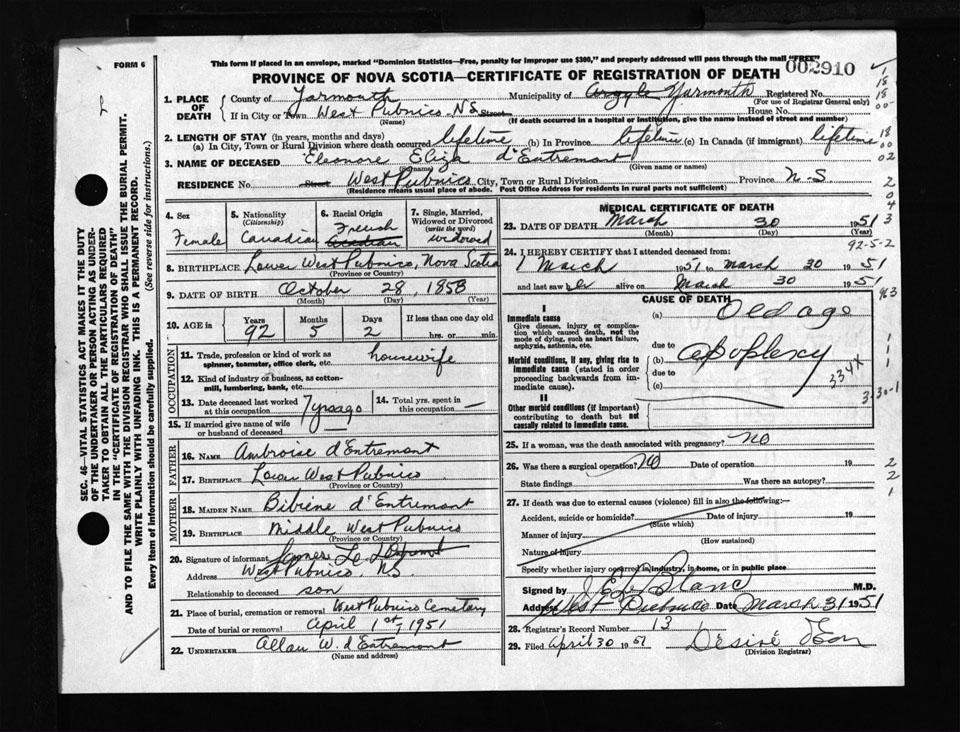 This form if placed in an envelope, marked "Dominion Statistics—Free, penalty for improper use $300," and properly addressed will pass through the mail "FREE"
FORM 6
002910
PROVINCE OF NOVA SCOTIA—CERTIFICATE OF REGISTRATION OF DEATH
1. PLACE OF DEATH
County of Yarmouth Municipality of Argyle Yarmouth Registered No.
(For use of Registrar General only)
If in City or Town West Pubnico N.S. Street House No.
(Name) (If death occurred in a hospital or institution, give the name instead of street and number)
2. LENGTH OF STAY (in years, months and days)
(a) In City, Town or Rural Division where death occurred lifetime (b) In Province lifetime (c) In Canada (if immigrant) lifetime
3. NAME OF DECEASED Eleonore Eliza d'Entremont
(Given name or names)
RESIDENCE No. Street West Pubnico City, Town or Rural Division Province N.S
(Residence means usual place of abode. Post Office Address for residents in rural parts not sufficient)
4. Sex Female
5. Nationality (Citizenship) Canadian
6. Racial Origin French
7. Single, Married, Widowed or Divorced (write the word) widowed
8. BIRTHPLACE Lower West Pubnico, Nova Scotia
(Province or Country)
9. DATE OF BIRTH October 28, 1858
(Month) (Day) (Year)
10. AGE in Years 92 Months 5 Days 2 If less than one day hrs. or min.
OCCUPATION
11. Trade, profession or kind of work as spinner, teamster, office clerk, etc. housewife
12. Kind of industry or business, as cotton-mill, lumbering, bank, etc.
13. Date deceased last worked at this occupation 7 yrs ago
14. Total yrs. spent in this occupation —
15. If married give name of wife or husband of deceased
FATHER
16. NAME Ambroise d'Entremont
17. BIRTHPLACE Lower West Pubnico
(Province or Country)
MOTHER
18. MAIDEN NAME Bibiène d'Entremont
19. BIRTHPLACE Middle West Pubnico
(Province or Country)
20. Signature of informant
Address West Pubnico, N.S.
Relationship to deceased son
21. Place of burial, cremation or removal West Pubnico Cemetary
Date of burial or removal April 1st, 1951
22. UNDERTAKER Allan W. d'Entremont
(Name and address)
MEDICAL CERTIFICATE OF DEATH
23. DATE OF DEATH March 30 1951
(Month) (Day) (Year)
92-5-2
24. I HEREBY CERTIFY that I attended deceased from:
1 March 1951 to March 30 1951
and last saw her alive on March 30 1951
CAUSE OF DEATH
I
Immediate cause
Give disease, injury or complication which caused death, not the mode of dying, such as heart failure, asphyxia, asthenia, etc.
(a) Old age
due to
Morbid conditions, if any, giving rise to immediate cause (stated in order proceeding backwards from immediate cause).
(b) apoplexy
due to
(c)
334X
3-30-1
II
Other morbid conditions (if important) contributing to death but not causally related to immediate cause.
25. If a woman, was the death associated with pregnancy? no
26. Was there a surgical operation? no Date of operation 19
State findings Was there an autopsy?
27. If death was due to external causes (violence) fill in also the following:—
Accident, suicide or homicide? Date of injury 19
(State which)
Manner of injury
(How sustained)
Nature of injury
Specify whether injury occurred in industry, in home, or in public place
Signed by J E LeBlanc M.D.
Address West Pubnico Date March 31 1951
28. Registrar's Record Number 13
29. Filed April 30 1951 Désiré
(Division Registrar)
SEC. 46—VITAL STATISTICS ACT MAKES IT THE DUTY
OF THE UNDERTAKER OR PERSON ACTING AS UNDER-
TAKER TO OBTAIN ALL THE PARTICULARS REQUIRED
IN THE "CERTIFICATE OF REGISTRATION OF DEATH"
AND TO FILE THE SAME WITH THE DIVISION REGISTRAR WHO SHALL ISSUE THE BURIAL PERMIT.
WRITE PLAINLY WITH UNFADING INK. THIS IS A PERMANENT RECORD.
Every item of information should be carefully supplied. (See reverse side for instructions.)